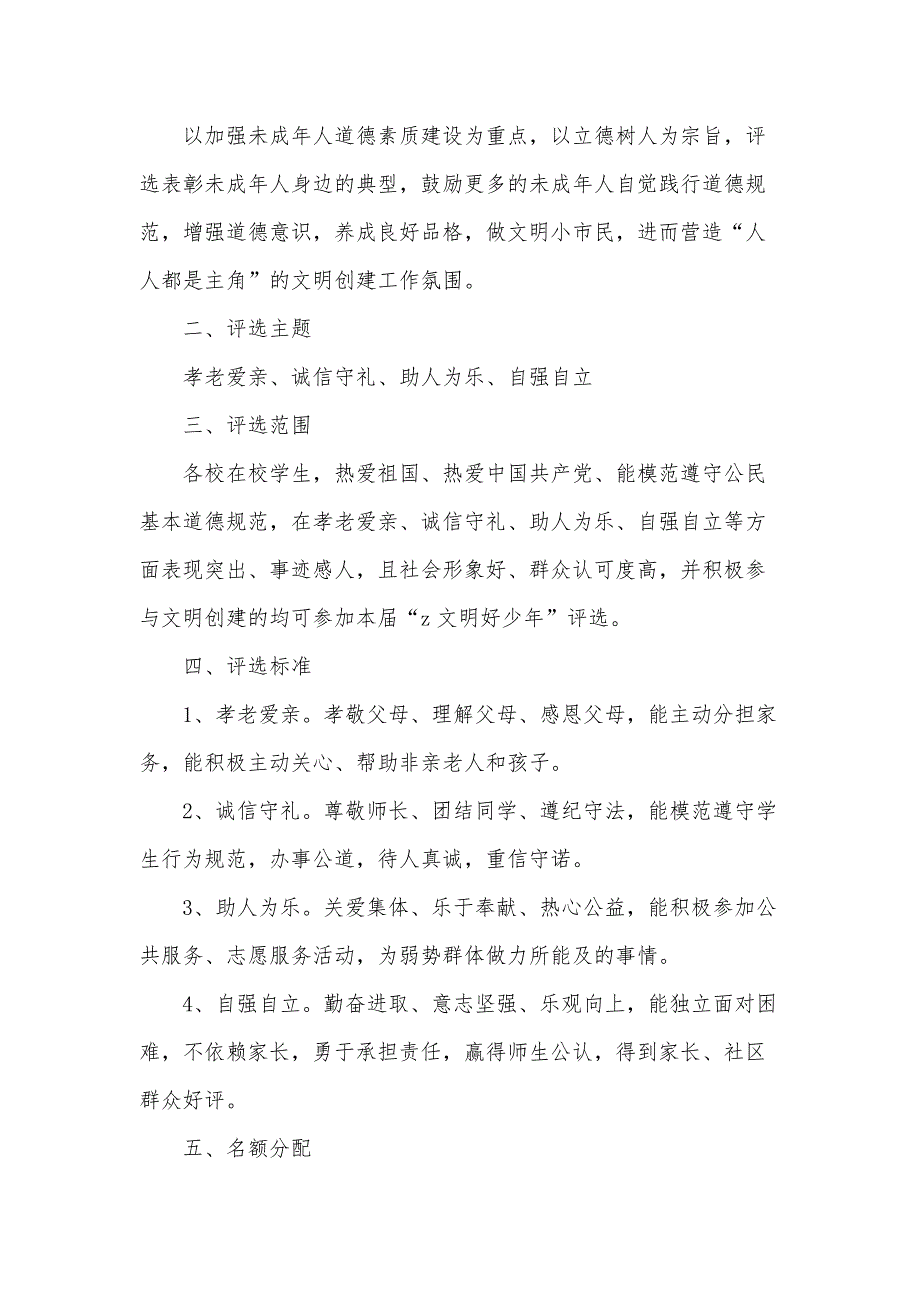 以加强未成年人道德素质建设为重点，以立德树人为宗旨，评
选表彰未成年人身边的典型，鼓励更多的未成年人自觉践行道德规
范，增强道德意识，养成良好品格，做文明小市民，进而营造“人
人都是主角”的文明创建工作氛围。
二、评选主题
孝老爱亲、诚信守礼、助人为乐、自强自立
三、评选范围
各校在校学生，热爱祖国、热爱中国共产党、能模范遵守公民
基本道德规范，在孝老爱亲、诚信守礼、助人为乐、自强自立等方
面表现突出、事迹感人，且社会形象好、群众认可度高，并积极参
与文明创建的均可参加本届“z 文明好少年”评选。
四、评选标准
1、孝老爱亲。孝敬父母、理解父母、感恩父母，能主动分担家
务，能积极主动关心、帮助非亲老人和孩子。
2、诚信守礼。尊敬师长、团结同学、遵纪守法，能模范遵守学
生行为规范，办事公道，待人真诚，重信守诺。
3、助人为乐。关爱集体、乐于奉献、热心公益，能积极参加公
共服务、志愿服务活动，为弱势群体做力所能及的事情。
4、自强自立。勤奋进取、意志坚强、乐观向上，能独立面对困
难，不依赖家长，勇于承担责任，赢得师生公认，得到家长、社区
群众好评。
五、名额分配